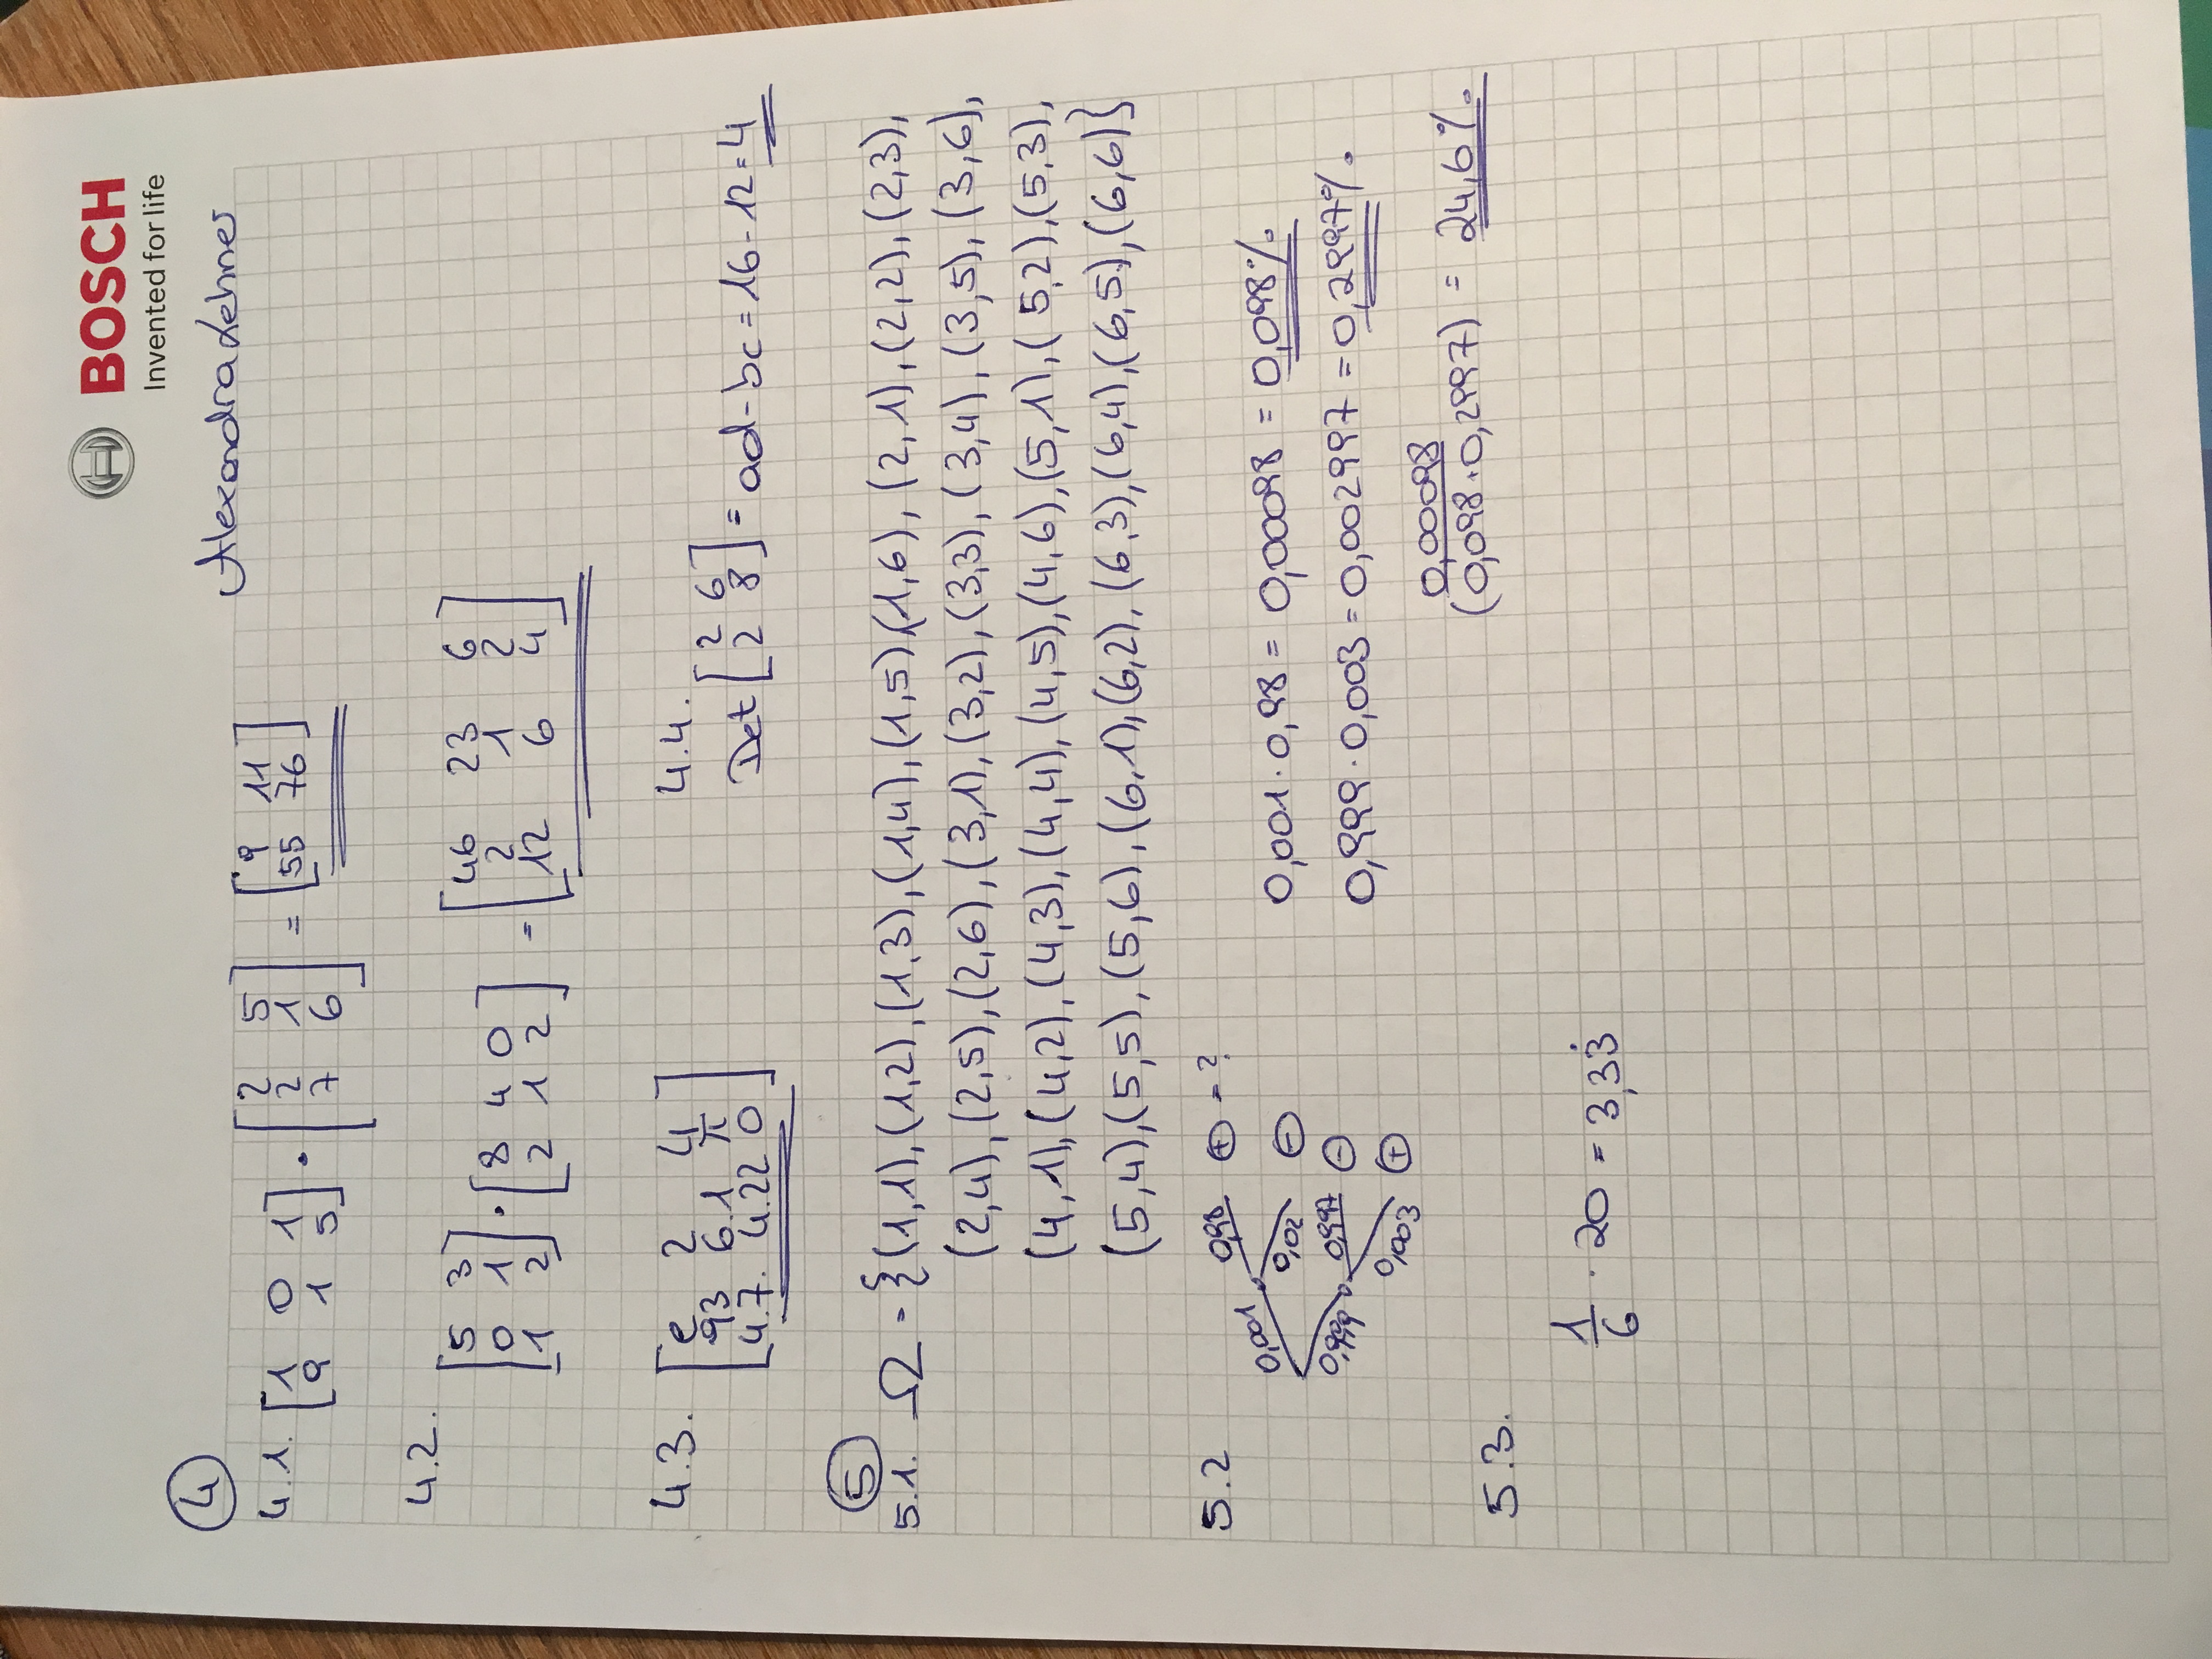 BOSCH
Invented for life
Alexandra Lehner
4
4.1. [1 0 1 / 9 1 5] · [2 5 / 2 1 / 7 6] = [9 11 / 55 76]
4.2.
[5 3 / 0 1 / 1 2] · [8 4 0 / 2 1 2] = [46 23 6 / 2 1 2 / 12 6 4]
4.3. [e 2 4 / 93 6.1 π / 4.7. 4.22 0]
4.4.
Det [2 6 / 2 8] = ad-bc = 16-12 = 4
5
5.1. Ω = {(1,1), (1,2), (1,3), (1,4), (1,5), (1,6), (2,1), (2,2), (2,3),
(2,4), (2,5), (2,6), (3,1), (3,2), (3,3), (3,4), (3,5), (3,6),
(4,1), (4,2), (4,3), (4,4), (4,5), (4,6), (5,1), (5,2), (5,3),
(5,4), (5,5), (5,6), (6,1), (6,2), (6,3), (6,4), (6,5), (6,6)}
5.2
0,001 0,98 + = ?
0,02 -
0,999 0,997 -
0,003 +
0,001 · 0,98 = 0,00098 = 0,098%
0,999 · 0,003 = 0,002997 = 0,2997%
0,00098
(0,098+0,2997) = 24,6%
5.3.
1/6 · 20 = 3,33̇